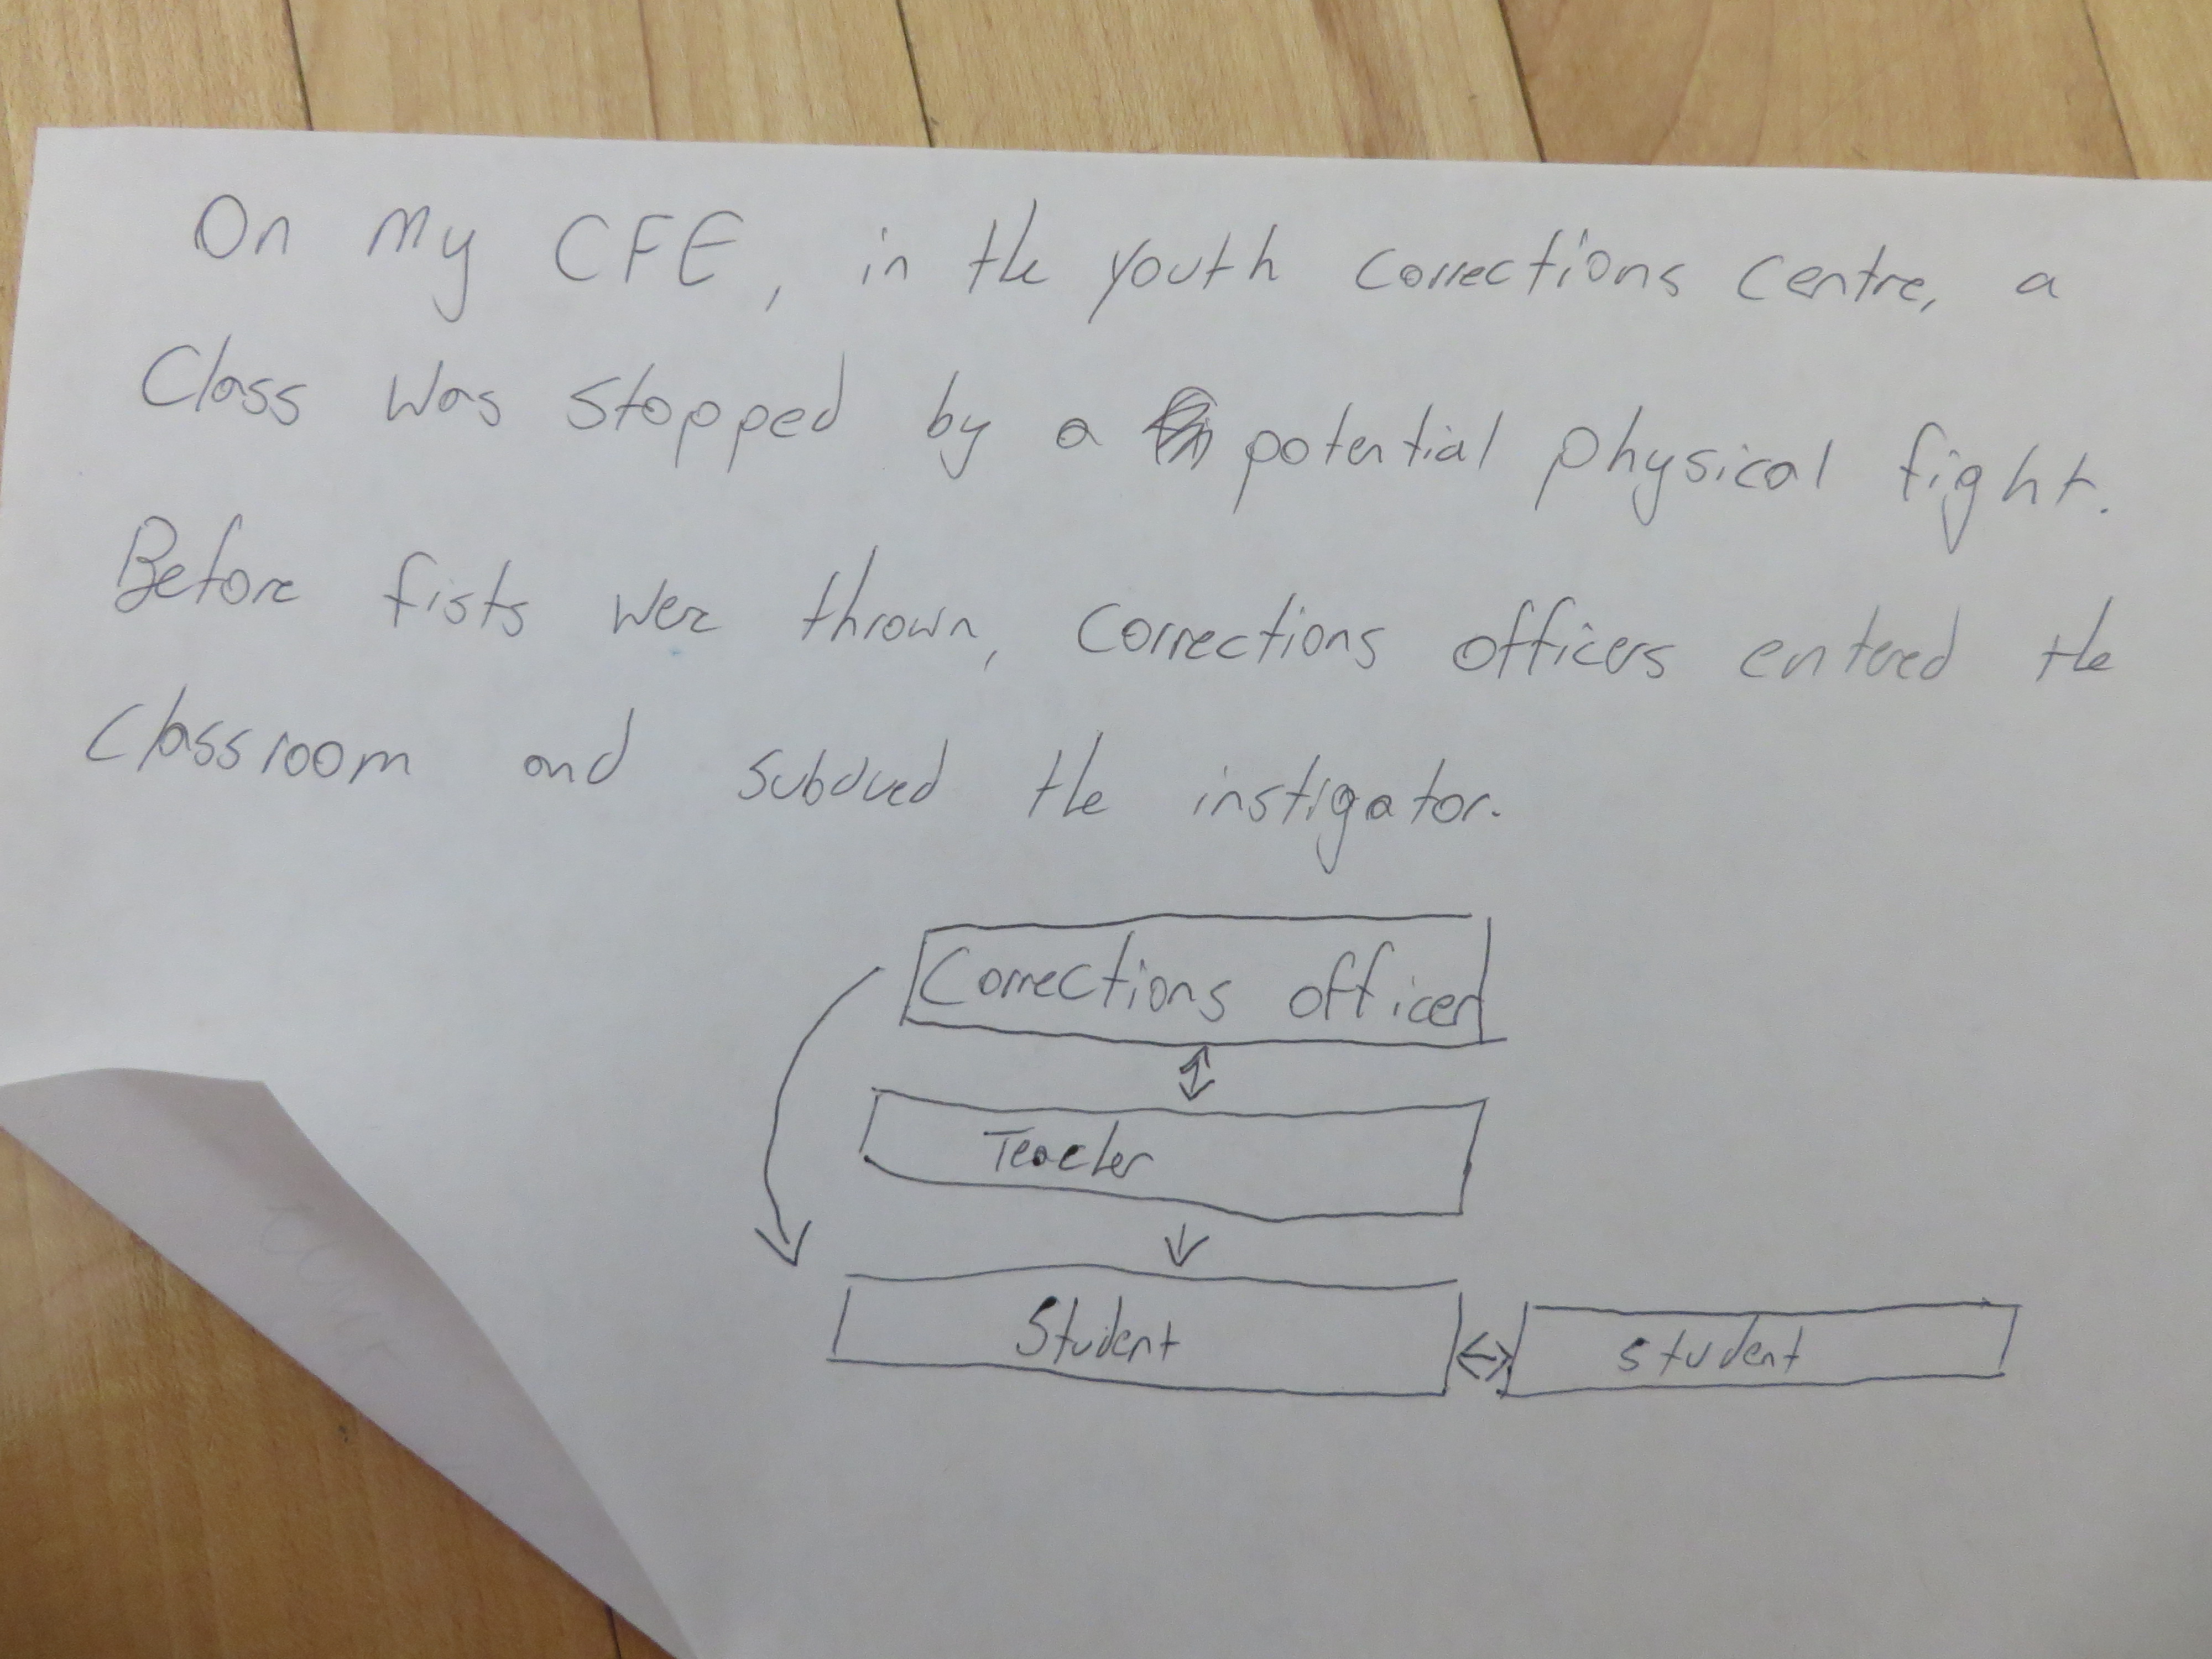 On my CFE, in the youth corrections centre, a
Class was stopped by a potential physical fight.
Before fists were thrown, corrections officers entered the
classroom and subdued the instigator.
Corrections officer
Teacher
Student
student